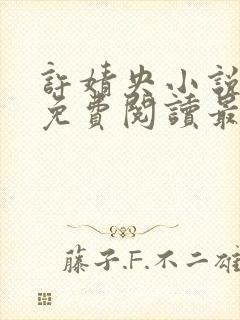 許婧央小說
免費閱讀最
藤子.F.不二雄